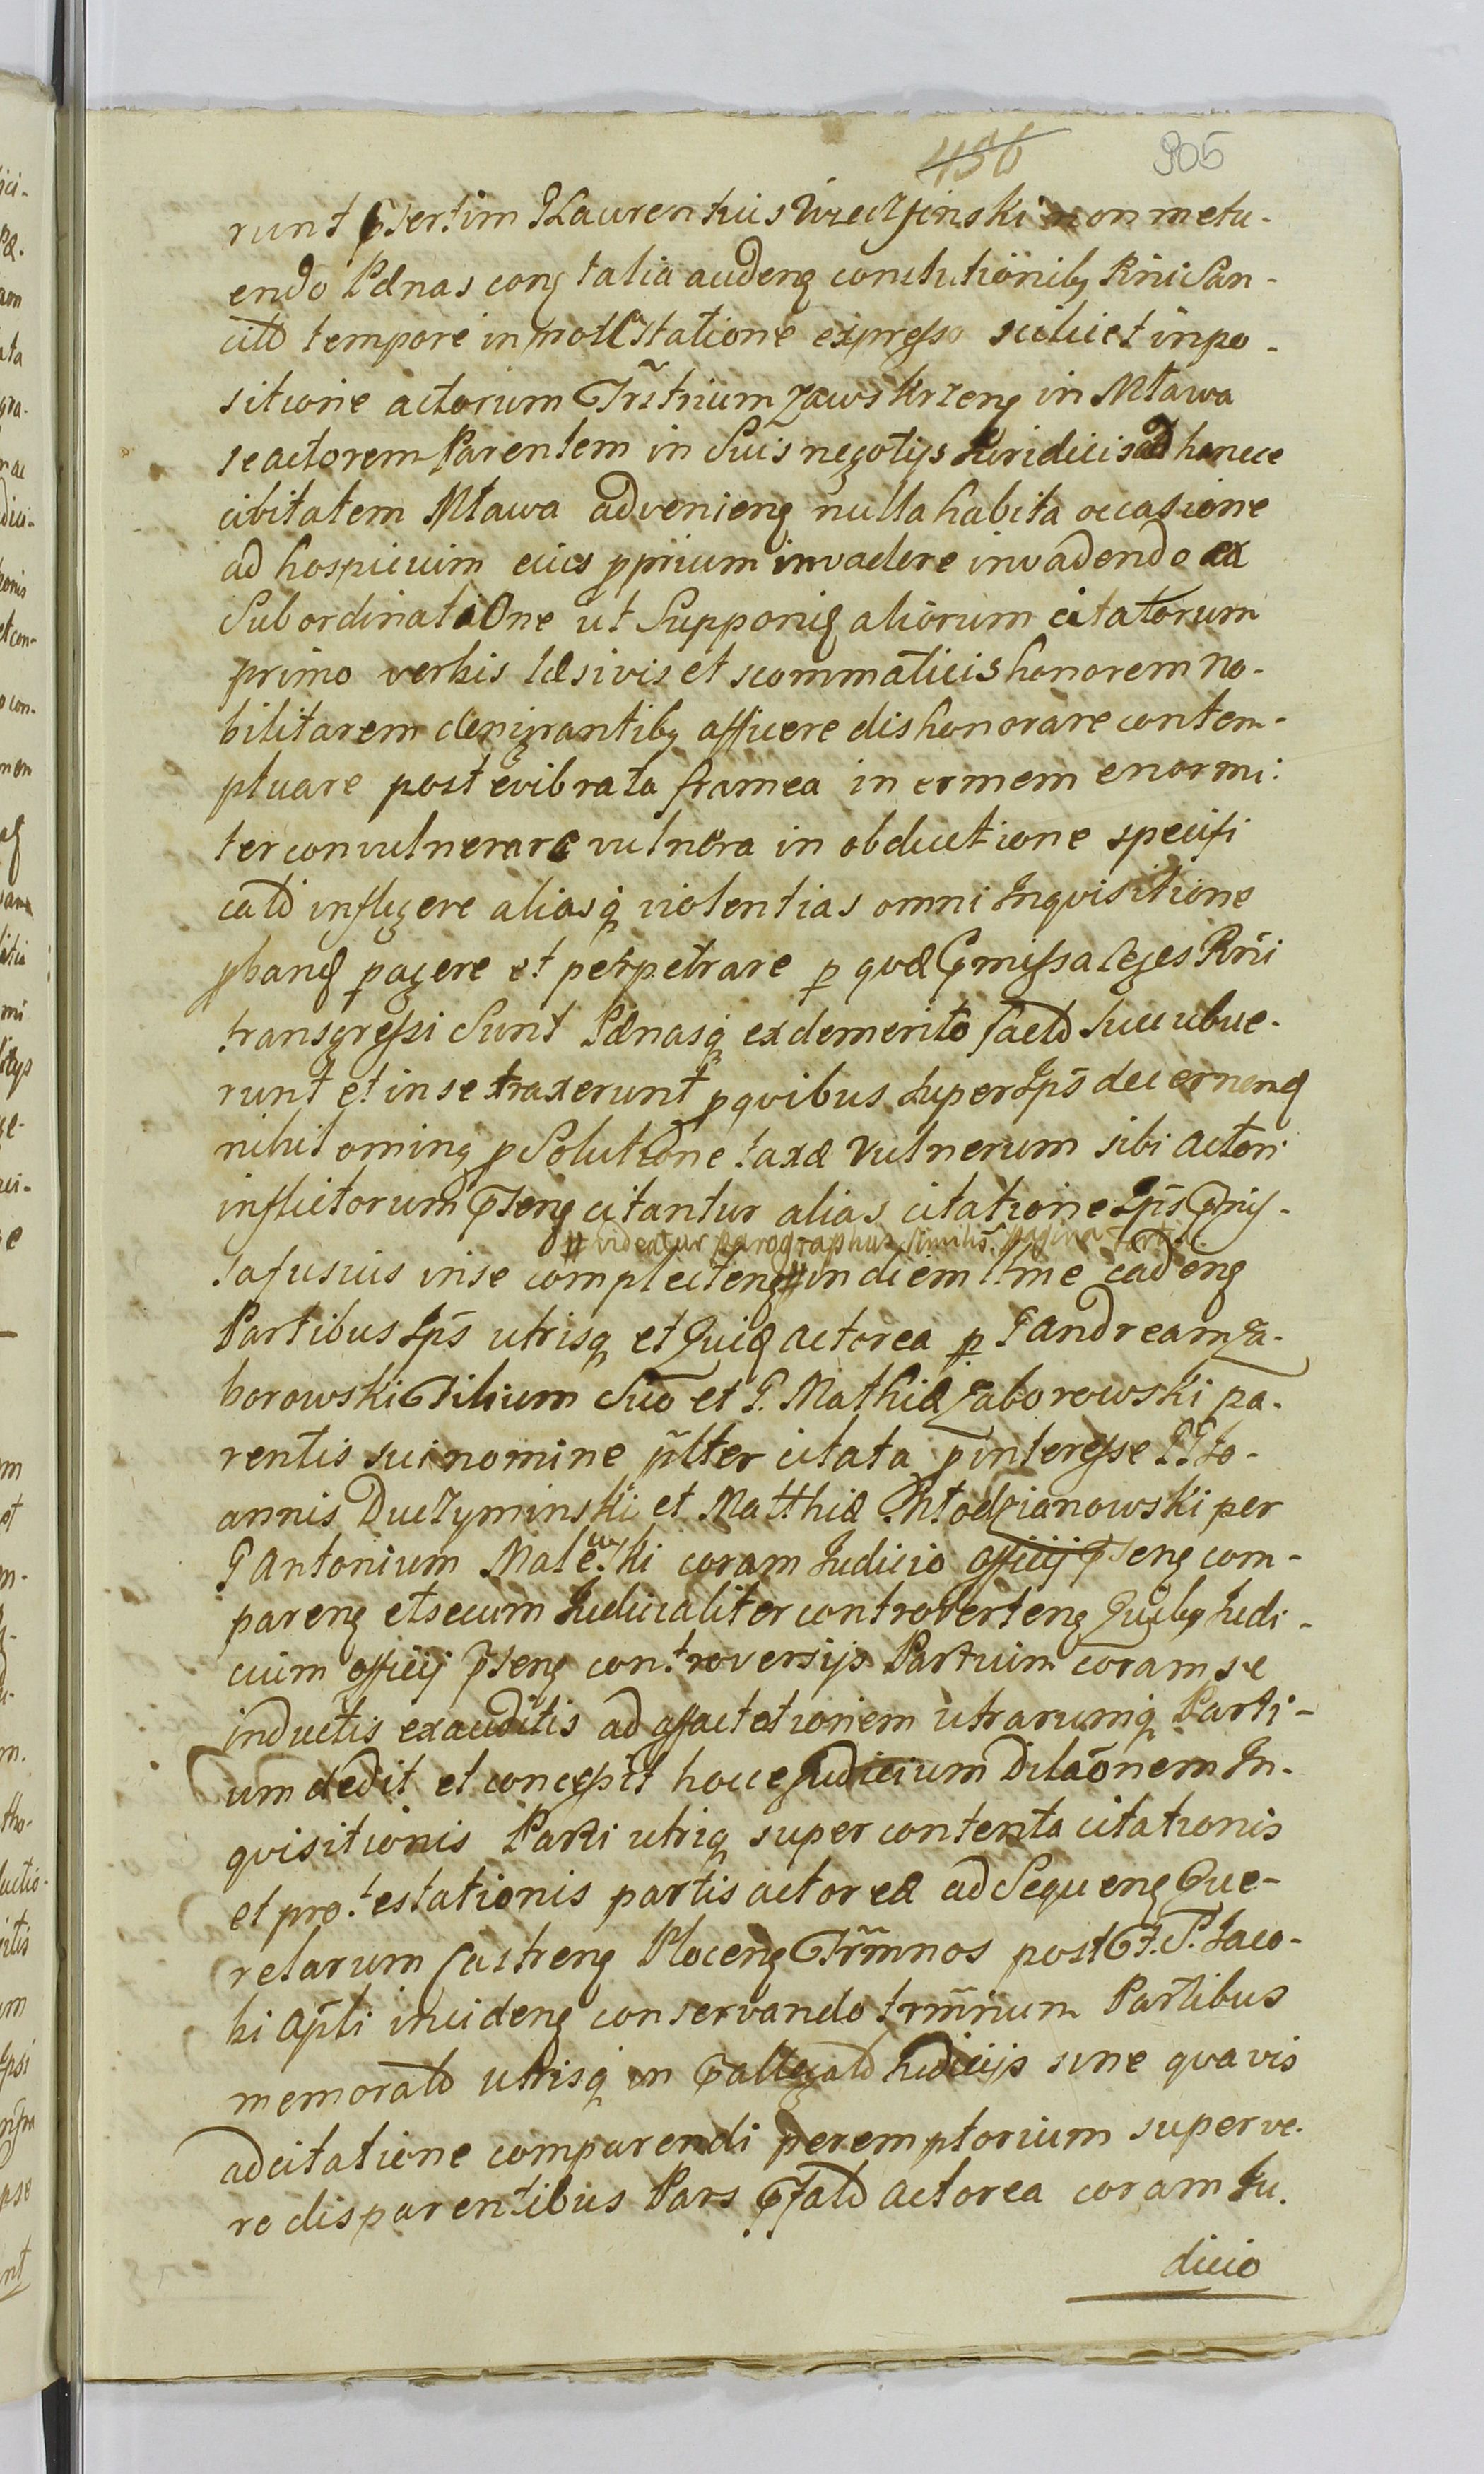 456 905
runt Psertim G Laurentius Uzedzinski non metu-
endo Pænas conz talia audenz constitutionibz Rni San-
citæ tempore in protestatione expresso scilicet in po-
sitione actorum Trstrium Zawskrzenz in Mława
se actorem Parentem in Suis negotijs Juridicis ad hancce
civitatem Mława advenienz nulla habita occasione
ad hospicium eius pprium invadere invadendo ex
Subordinatione ut Supponiz aliorum citatorum
primo verbis læsivis et scommaticis honorem no-
bilitarem denigrantibz afficere dishonorare contem-
ptuare post evibrata framea in ermem enormi:
ter convulnerare vulnera in obductione specifi
catæ infligere aliasq violentias omni Inqvisitione
pbandæ pagere et perpetrare p qvæ Pmissa leges Rni
transgressi Sunt Pænasq ex demerito factæ Succubue-
runt et in se traxerunt p qvibus Super Ips decernenz
nihil ominz p Solutione taxæ Vulnerum sibi actori
inflictorum Psenz citantur alias citatione Ips Pmis-
# videatur paragraphus similis pagina
sa fusius in se complectenz # in diem hne cadenz
Partibus Ips utrisq et Quidæ actorea p G Andream Za-
borowski Filium Suo et G. Mathiæ Zaborowski pa-
rentis sui nomine plter citata p interesse GG Jo-
annis Duczyminski et Matthiæ Chłodzianowski per
G Antonium Malewski coram Judicio officij Psenz com-
parenz et secum Judicialiter controvertenz Quibz Judi-
cium officij Psenz controversijs Partium coram se
inductis exauditis ad affectationem utrarumq Parti-
um dedit et concessit hocce Judicium Dilaõnem In-
qvisitionis Parti utriq super contenta citationis
et protestationis partis actoreæ ad Sequenz Que-
relarum Castrenz Plocenz Trmnos post F. S. Jaco-
bi Apli incidenz conservando trmnum Partibus
memoratæ utrisq in Pallegatæ Judicijs sine qvavis
adcitatione comparendi peremptorium super ve-
ro disparentibus Pars Pfatæ actorea coram Ju-
dicio